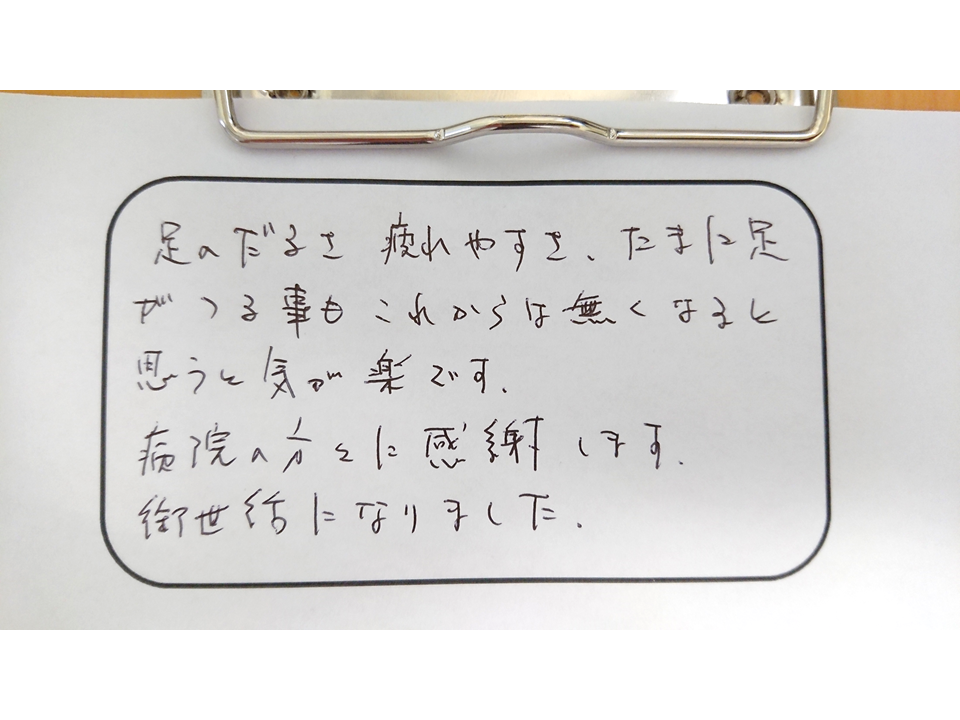 足のだるさ 疲れやすさ、たまに足
がつる事もこれからは無くなると
思うと気が楽です。
病院の方々に感謝します。
御世話になりました。